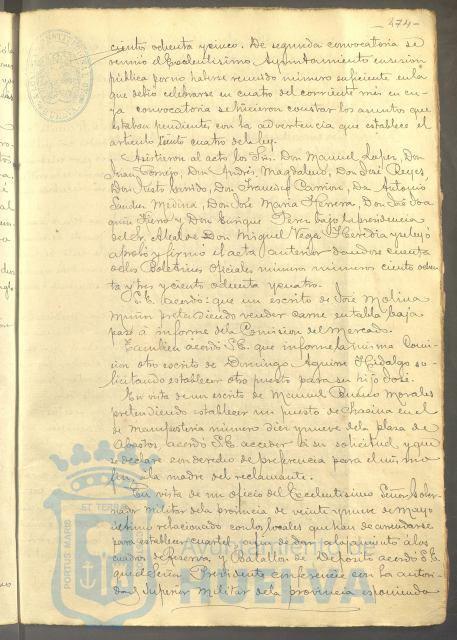 -274-
ciento ochenta y cinco. De segunda convocatoria se
reunió el Excelentísimo Ayuntamiento en sesión
pública por no haberse reunido número suficiente en la
que debió celebrarse en cuatro del corriente mes en cu-
ya convocatoria se hicieron constar los asuntos que
estaban pendientes con la advertencia que establece el
artículo ciento cuatro de la ley.
Asistieron al acto los Srs. Don Manuel Lopez, Don
Juan Don Andrés Magdaleno, Don José Reyes,
Don Justo Garrido, Don Francisco Carrion, Dn Antonio
Sanchez Medina, Don José Maria Herrera, Don José Joa-
quin y Don Enrique Perez bajo la presidencia
del Sr. Alcalde Don Miguel Vega Heredia y se leyó
aprobó y firmó el acta anterior dandose cuenta
de los Boletines Oficiales numeros numeros ciento ochen-
ta y tres y ciento ochenta y cuatro.
S.E. acordó: que un escrito de José Molina
Muñoz pretendiendo vender carne en tabla baja
pase á informe de la Comision del Mercado.
Tambien acordó S.E. que informe la misma Comi-
sion otro escrito de Domingo Aguirre Hidalgo so-
licitando establecer otro puesto para su hijo José.
En vista de un escrito de Manuel Morales
pretendiendo establecer un puesto de chacina en el
de manposteria número diez y nueve de la plaza de
Abastos acordó S.E. acceder á su solicitud, y que
se declare con derecho de preferencia para el
á la madre del reclamante.
En vista de un oficio del Excelentísimo Señor Gober-
nador Militar de la provincia de veinte y nueve de Mayo
último relacionado con los locales que han de arrendarse
para establecer cuartel, á fin de dar alojamiento á los
cuadros de Reserva y Batallon de Depósito acordó S.E.
que el Señor Presidente conferencie con la autori-
dad Superior Militar de la provincia
PORTUS MARIS ET TERRAE
Ayuntamiento de
HUELVA